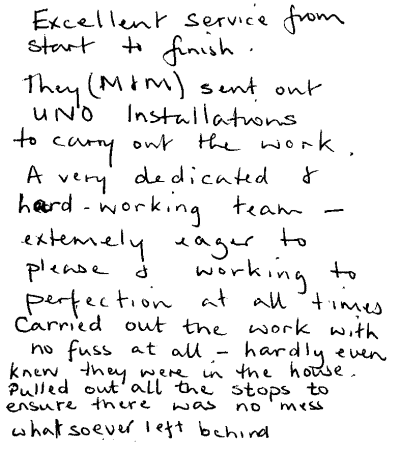 Excellent service from
start to finish.
They (M&M) sent out
UNO Installations
to carry out the work.
A very dedicated &
hard-working team –
extemely eager to
please & working to
perfection at all times
Carried out the work with
no fuss at all – hardly even
knew they were in the house.
Pulled out all the stops to
ensure there was no mess
whatsoever left behind